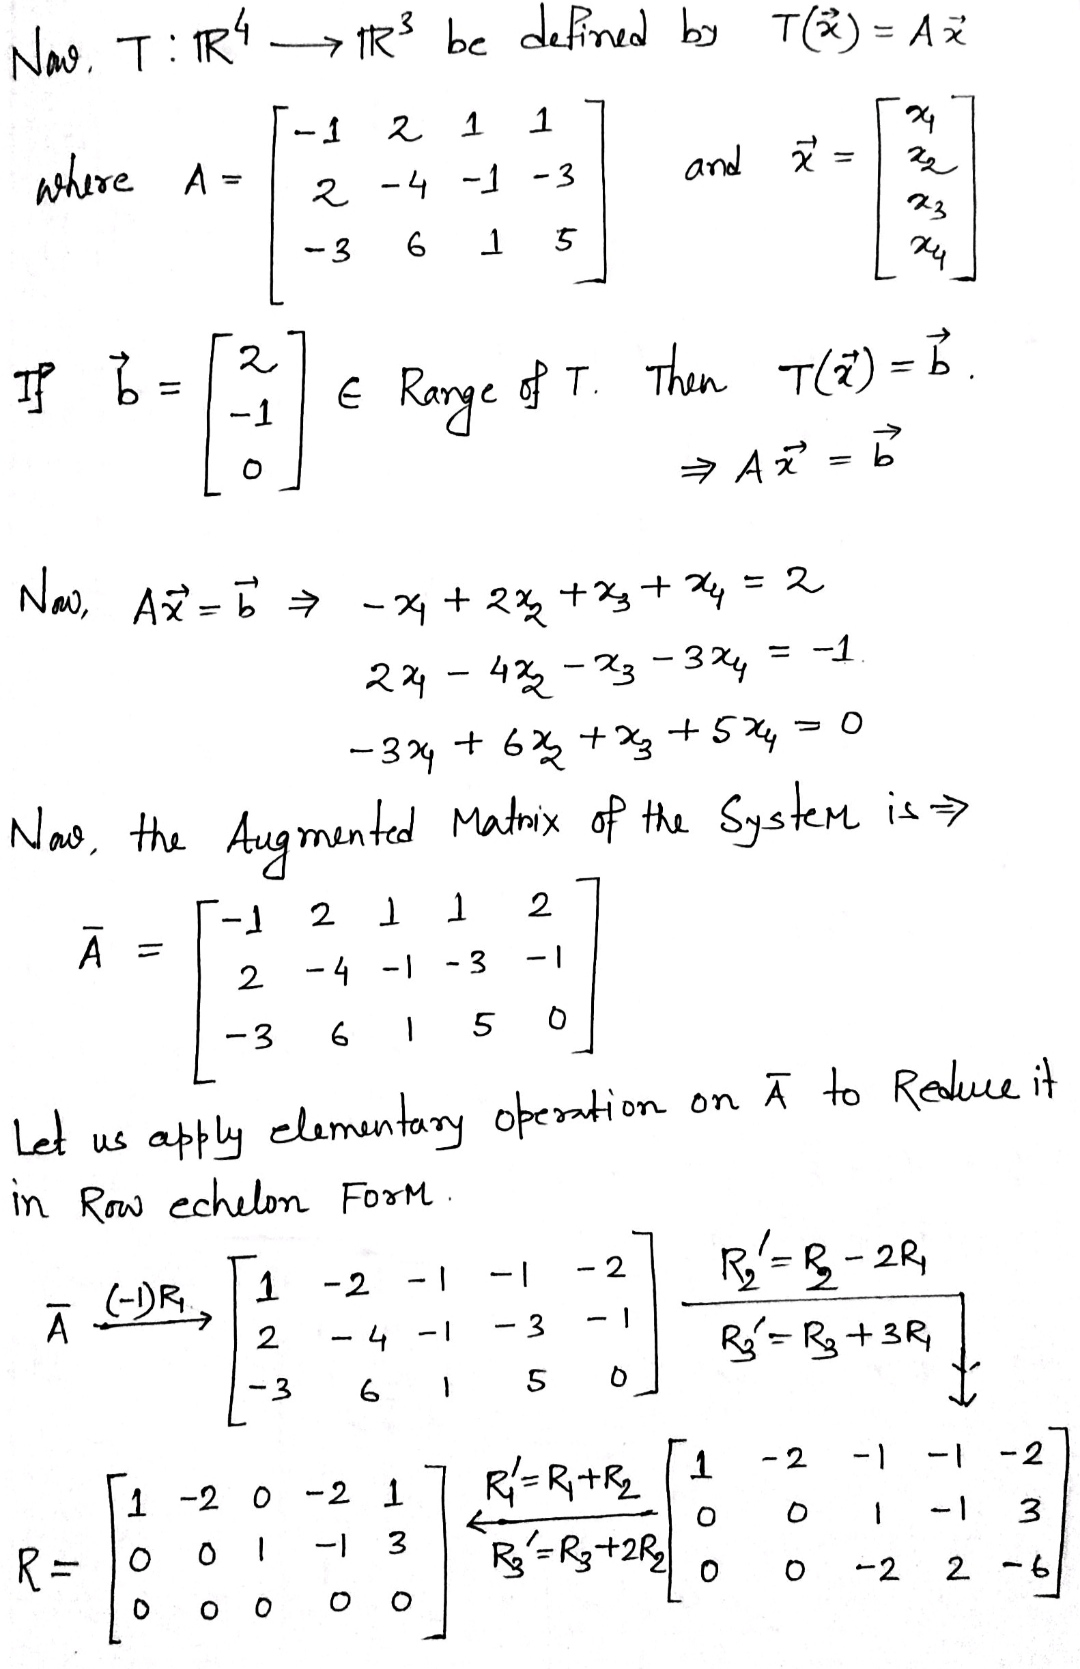 Now, T : ℝ⁴ ⟶ ℝ³ be defined by T(x⃗) = A x⃗
where A = [ -1 2 1 1 ; 2 -4 -1 -3 ; -3 6 1 5 ] and x⃗ = [ x₁ ; x₂ ; x₃ ; x₄ ]
If b⃗ = [ 2 ; -1 ; 0 ] ∈ Range of T. Then T(x⃗) = b⃗.
⇒ A x⃗ = b⃗
Now, Ax⃗ = b⃗ ⇒ -x₁ + 2x₂ + x₃ + x₄ = 2
2x₁ - 4x₂ - x₃ - 3x₄ = -1.
-3x₁ + 6x₂ + x₃ + 5x₄ = 0
Now, the Augmented Matrix of the System is ⇒
Ā = [ -1 2 1 1 2 ; 2 -4 -1 -3 -1 ; -3 6 1 5 0 ]
Let us apply elementary operation on Ā to Reduce it
in Row echelon Form.
Ā (-1)R₁ → [ 1 -2 -1 -1 -2 ; 2 -4 -1 -3 -1 ; -3 6 1 5 0 ] R₂' = R₂ - 2R₁ R₃' = R₃ + 3R₁
R = [ 1 -2 0 -2 1 ; 0 0 1 -1 3 ; 0 0 0 0 0 ] ← R₁' = R₁ + R₂ R₃' = R₃ + 2R₂ [ 1 -2 -1 -1 -2 ; 0 0 1 -1 3 ; 0 0 -2 2 -6 ]